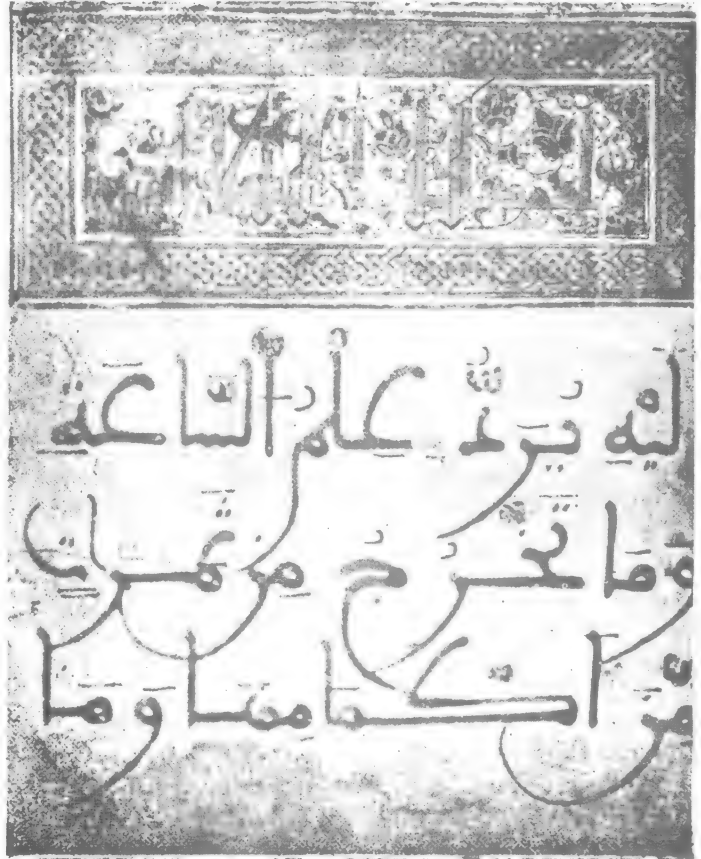 ليه يُرَدُّ عِلْمُ ٱلسَّاعَةِ
وَمَا تَخْرُجُ مِن ثَمَرَاتٍ
مِّنَ اكْمَامِهَا وَمَا